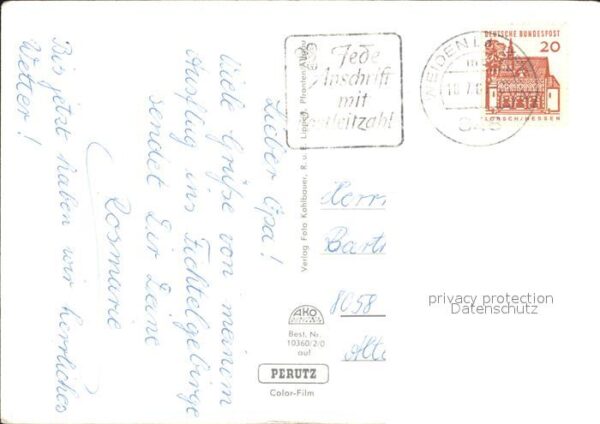 Lieber Opa!
Viele Grüße von meinem
Ausflug ins Fichtelgebirge
sendet Dir Deine
Rosmarie
Bis jetzt haben wir herrliches
Wetter!
Verlag Foto Kohlbauer, R. u. E. Lippert, Pfronten-Allgäu
Jede
Anschrift
mit
Postleitzahl
WEIDEN
DEUTSCHE BUNDESPOST
20
LORSCH/HESSEN
Herrn
8058
AKO
Best. Nr.
10360/2/0
auf
PERUTZ
Color-Film
privacy protection
Datenschutz